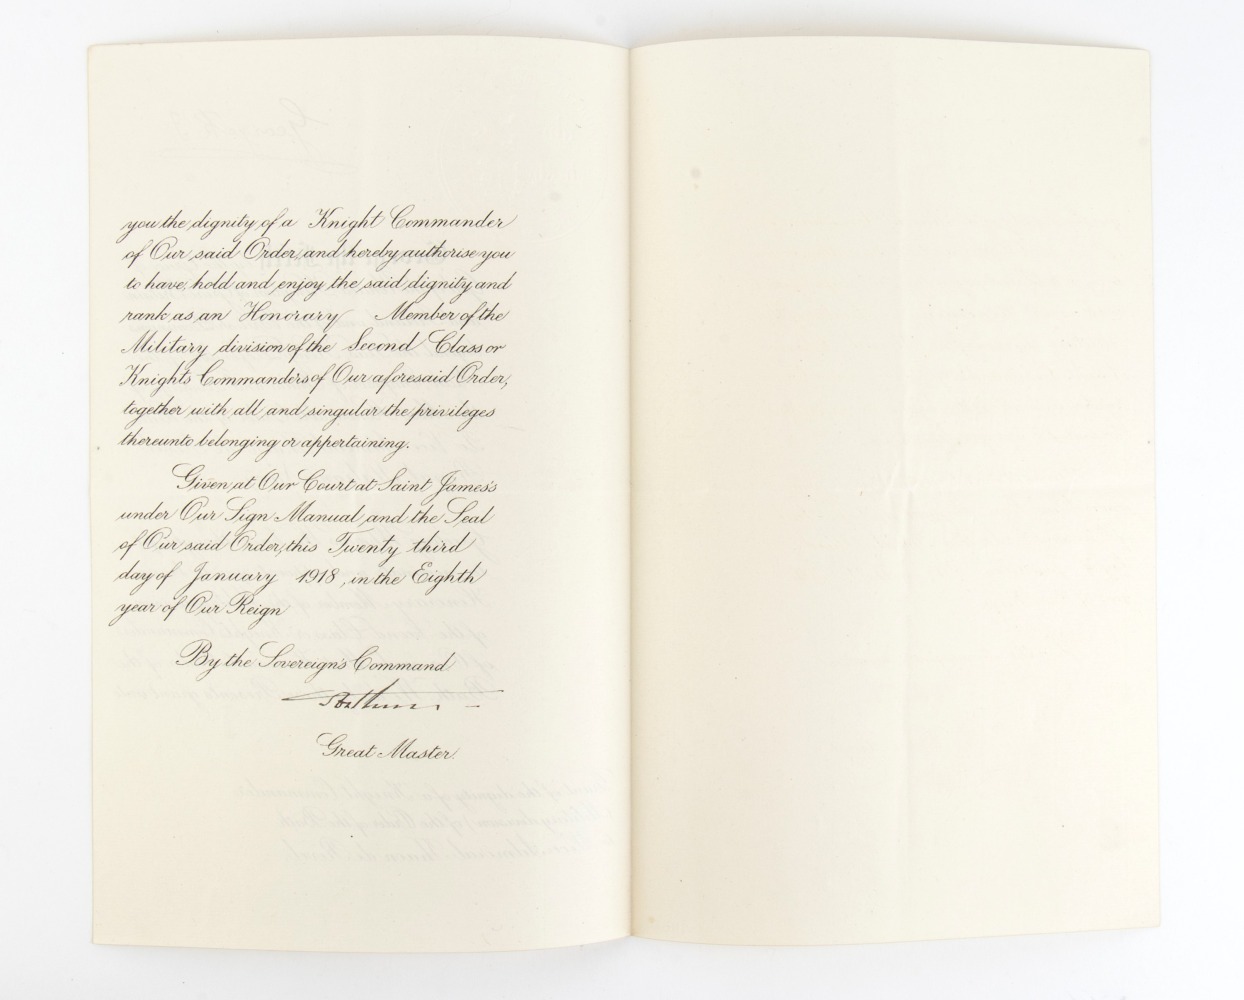 you the dignity of a Knight Commander
of Our said Order, and hereby authorise you
to have, hold and enjoy the said dignity and
rank as an Honorary Member of the
Military division of the Second Class or
Knights Commanders of Our aforesaid Order,
together with all and singular the privileges
thereunto belonging or appertaining.
Given at Our Court at Saint James's
under Our Sign Manual and the Seal
of Our said Order, this Twenty third
day of January 1918, in the Eighth
year of Our Reign
By the Sovereign's Command
Arthur
Great Master.